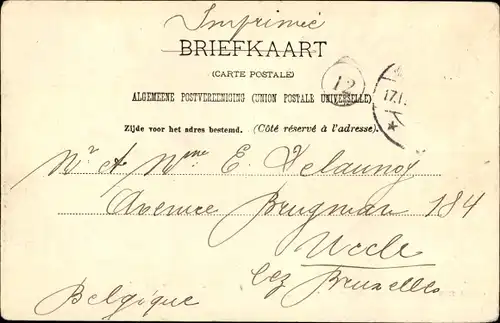 Imprimé
BRIEFKAART
(CARTE POSTALE)
12
17.1
ALGEMEENE POSTVEREENIGING (UNION POSTALE UNIVERSELLE)
Zijde voor het adres bestemd. (Côté réservé à l'adresse).
Mr et Mme E. Delaunoÿ
Avenue Brugman 184
Uccle
lez Bruxelles
Belgique